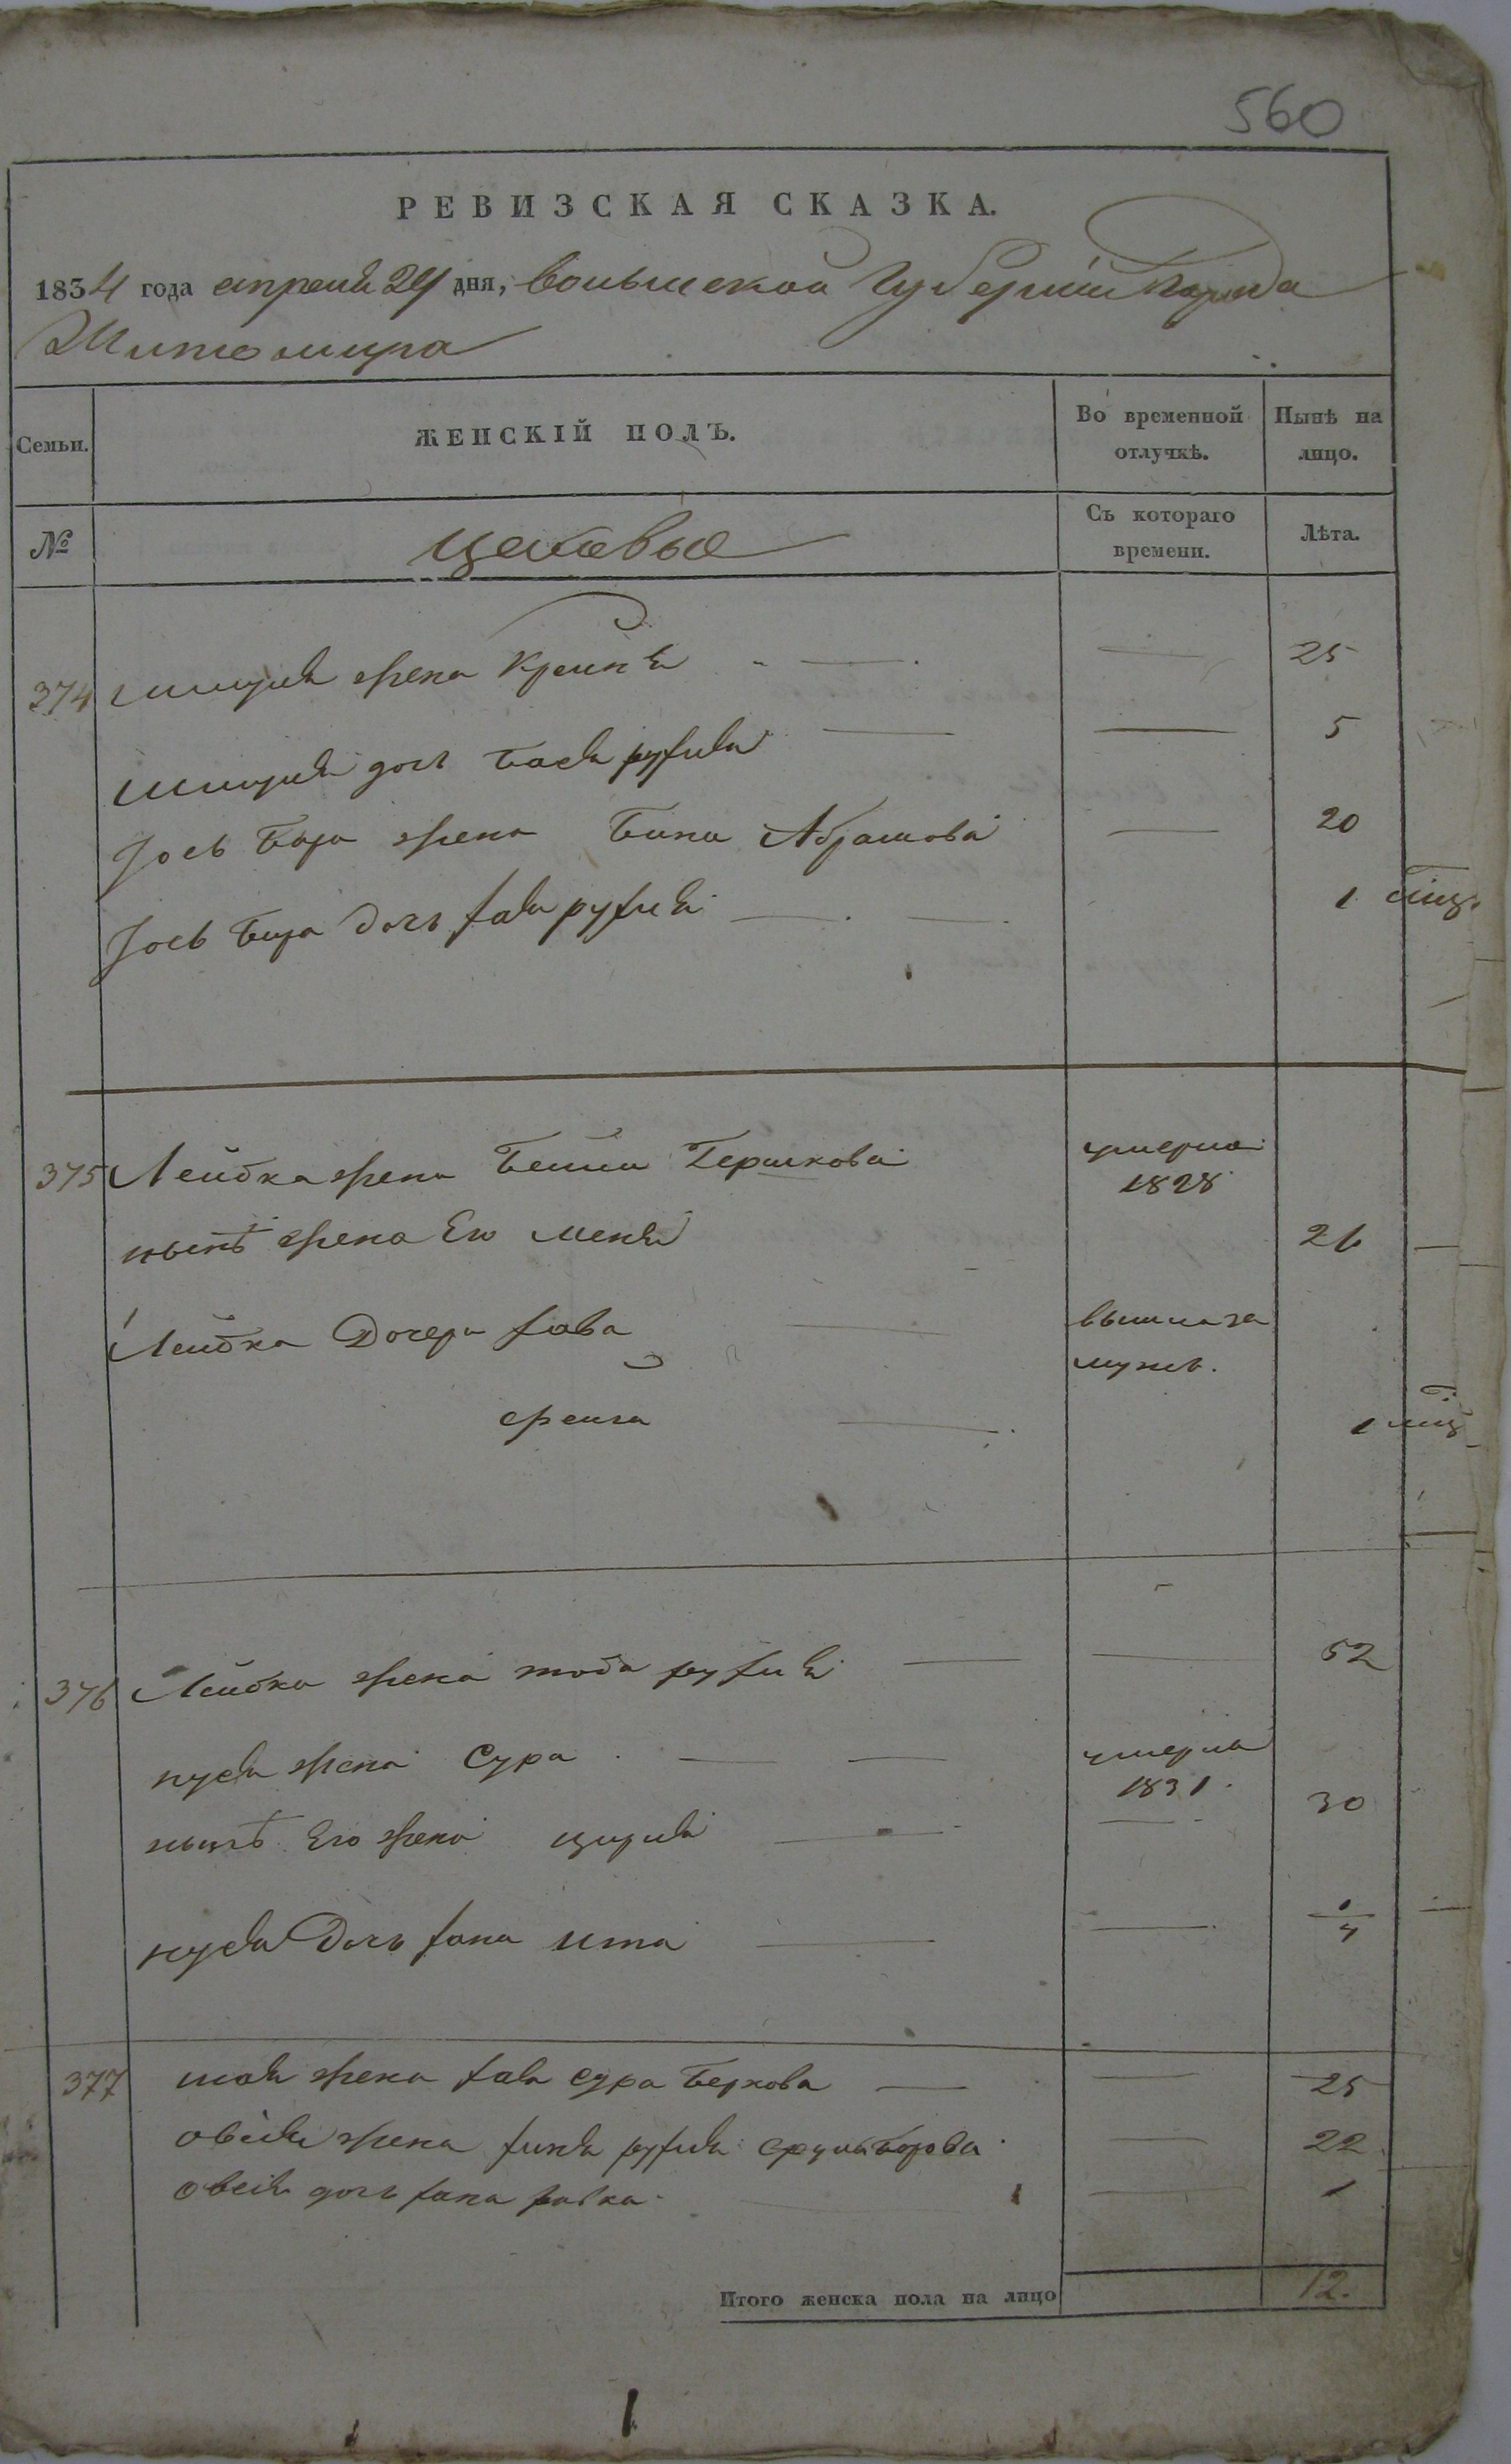 560
РЕВИЗСКАЯ СКАЗКА.
1834 года апреля 24 дня, волынской Губернии города
Житомира
Семьи. ЖЕНСКІЙ ПОЛЪ. Во временной отлучкѣ. Нынѣ на лицо.
№ цеховые Съ котораго времени. Лѣта.
374 жена Крейня 25
дочь Бася рухля 5
Іось Бера жена Абрамова 20
Іось Бера дочь хая рухля 1 міц.
375 Лейбка жена Бейла Гершкова умерла 1828
нынѣ жена Его 26
Лейбка Дочери хава вышла за мужъ.
фейга 1 міц
376 Лейбка жена тоба рухля 52
нуся жена Сура умерла 1831.
нынѣ Его жена цирля 30
нуся Дочь хана ита
377 жена хая сура Беркова 25
овсія жена рухля 22
овсія дочь хана 1
Итого женска пола на лицо 12.